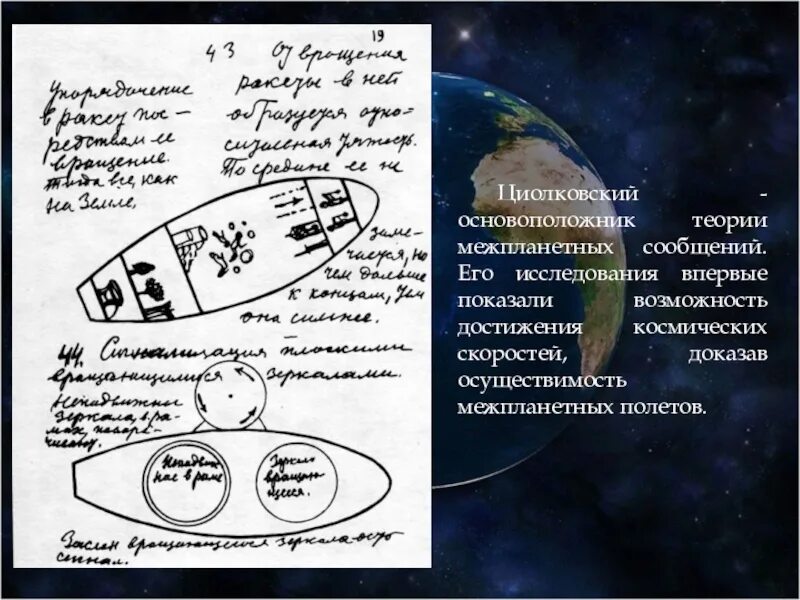 19
43 От вращения
ракеты в ней
образуется отно-
сительная тяжесть.
По средине ее не
заме-
чается, но
чем дальше
к концам, тем
она сильнее.
Упорядочение
в ракете пос-
редствам ее
вращение.
тогда все, как
на Земле,
44. Сигнализация плоскими
вращающимися зеркалами.
Неподвижное
зеркало, в ра-
мах,
Неподвиж
ное в раме
Зеркало
вращаю-
щееся.
вращающегося зеркала есть
сигнал.
Циолковский -
основоположник теории
межпланетных сообщений.
Его исследования впервые
показали возможность
достижения космических
скоростей, доказав
осуществимость
межпланетных полетов.